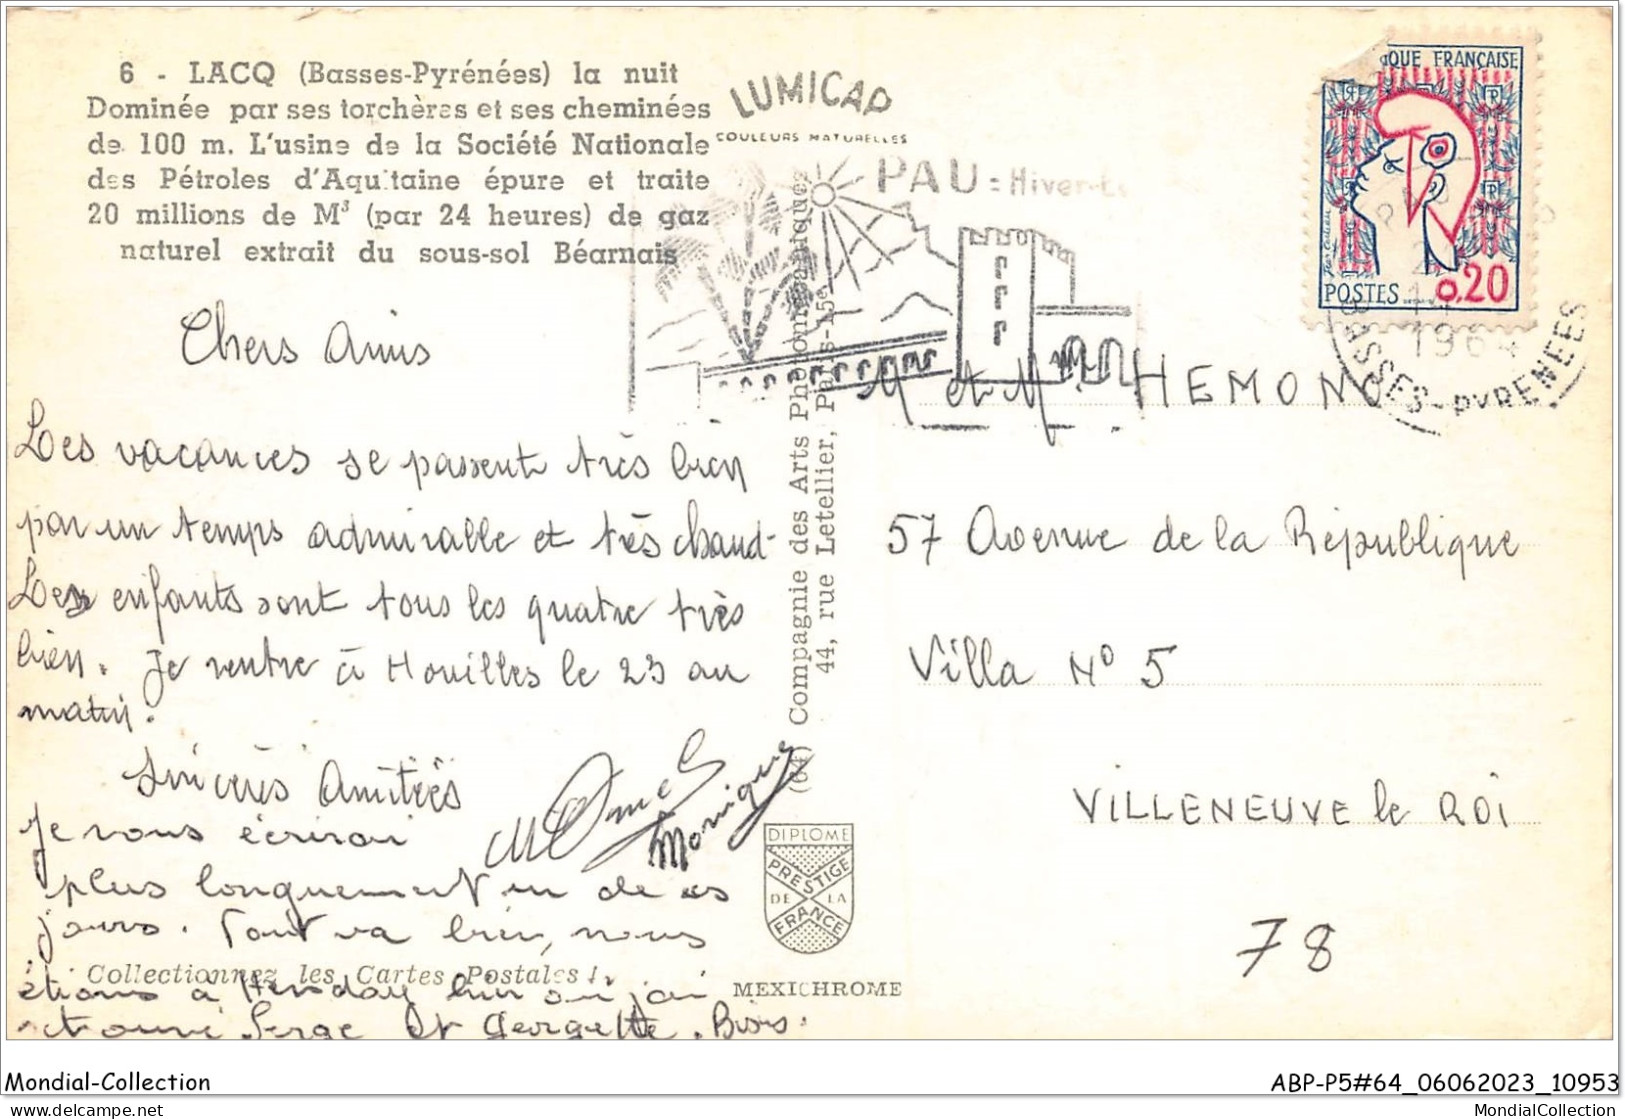 6 - LACQ (Basses-Pyrénées) la nuit
Dominée par ses torchères et ses cheminées
de 100 m. L'usine de la Société Nationale
des Pétroles d'Aquitaine épure et traite
20 millions de M³ (par 24 heures) de gaz
naturel extrait du sous-sol Béarnais
LUMICAP
COULEURS NATURELLES
PAU = Hiver
QUE FRANÇAISE
POSTES 0,20
1964
BASSES-PYRENEES
Chers Amis
Les vacances se passent très bien
par un temps admirable et très chaud-
Les enfants sont tous les quatre très
bien. Je rentre à Houilles le 23 au
matin.
Sincères Amitiés
Monique
Je vous écrirai
plus longuement un de ces
jours. Tout va bien, nous
étions à Hendaye hier où j'ai
retrouvé Serge et Georgette. Bises.
(64) Compagnie des Arts Photomécaniques
44, rue Letellier, Paris-15e
M et Mme HEMOND
57 Avenue de la République
Villa N° 5
VILLENEUVE le ROI
78
DIPLOME
PRESTIGE
DE LA
FRANCE
Collectionnez les Cartes Postales !
MEXICHROME
Mondial-Collection
ABP-P5#64_06062023_10953
delcampe.net
MondialCollection